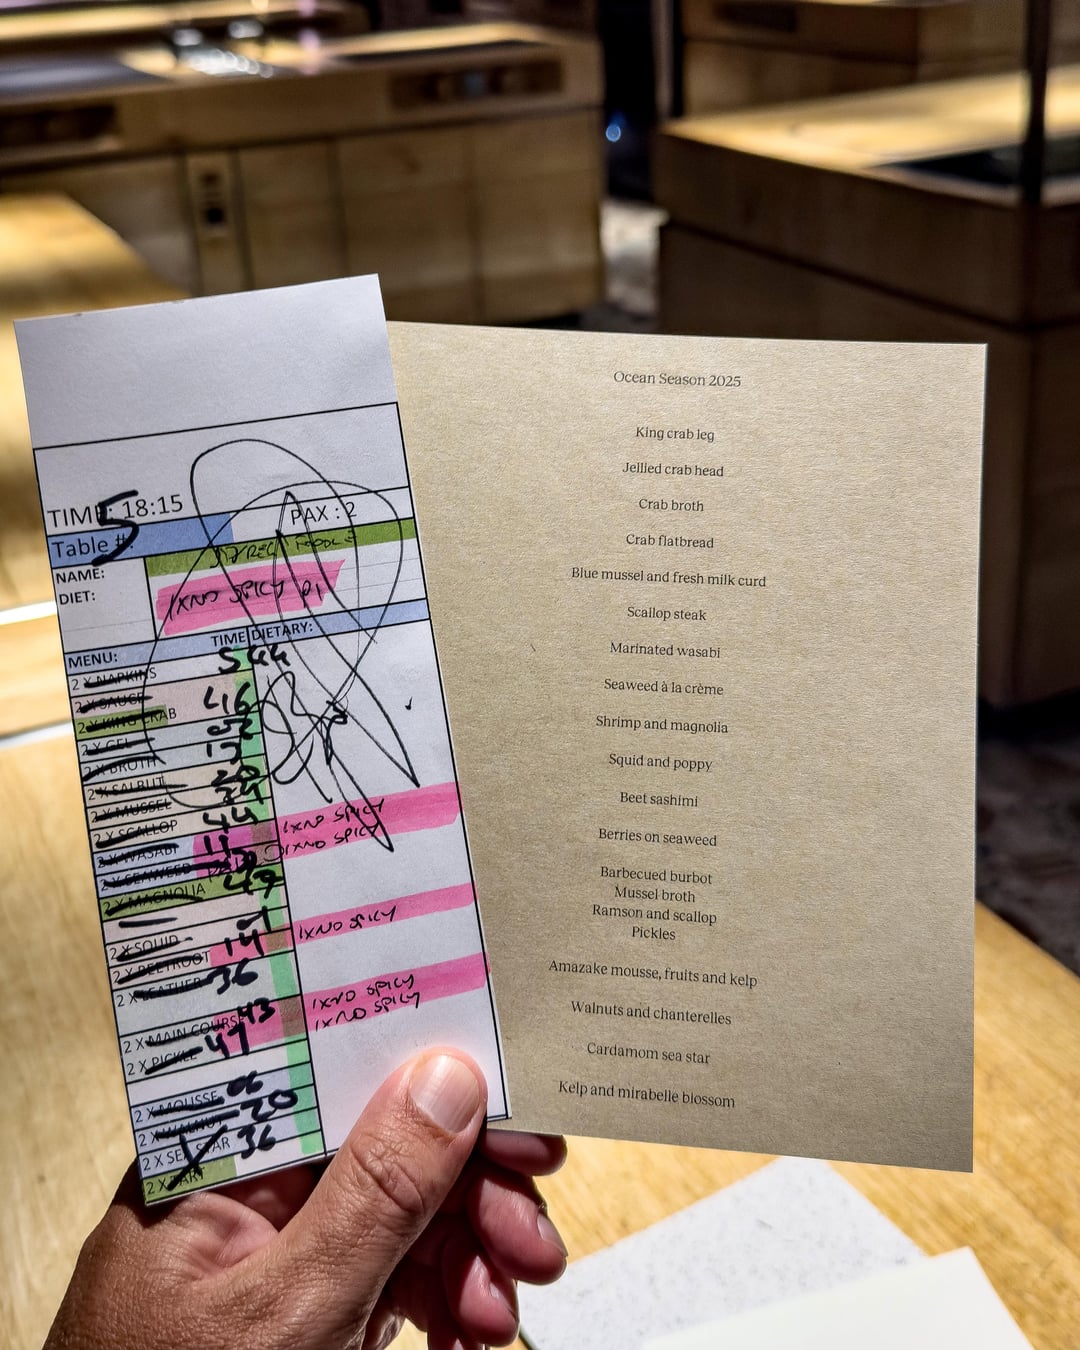 TIME: 18:15
PAX : 2
Table #:
5
NAME:
DIET:
1XNO SPICY P1
MENU:
TIME
DIETARY:
544
2 X NAPKINS
2 X SAUCE
2 X KING CRAB
2 X GEL
2 X BROTH
2 X SALBUT
2 X MUSSEL
2 X SCALLOP
44
1XNO SPICY
2 X WASABI
1XNO SPICY
2 X SEAWEED
2 X MAGNOLIA
49
2 X SQUID
1XNO SPICY
2 X BEETROOT 14
2 X LEATHER 36
1XNO SPICY
2 X MAIN COURSE 43
1XNO SPICY
2 X PICKLE 47
2 X MOUSSE 06
2 X WALNUT 20
2 X SEA STAR 36
2 X TART
Ocean Season 2025
King crab leg
Jellied crab head
Crab broth
Crab flatbread
Blue mussel and fresh milk curd
Scallop steak
Marinated wasabi
Seaweed à la crème
Shrimp and magnolia
Squid and poppy
Beet sashimi
Berries on seaweed
Barbecued burbot
Mussel broth
Ramson and scallop
Pickles
Amazake mousse, fruits and kelp
Walnuts and chanterelles
Cardamom sea star
Kelp and mirabelle blossom